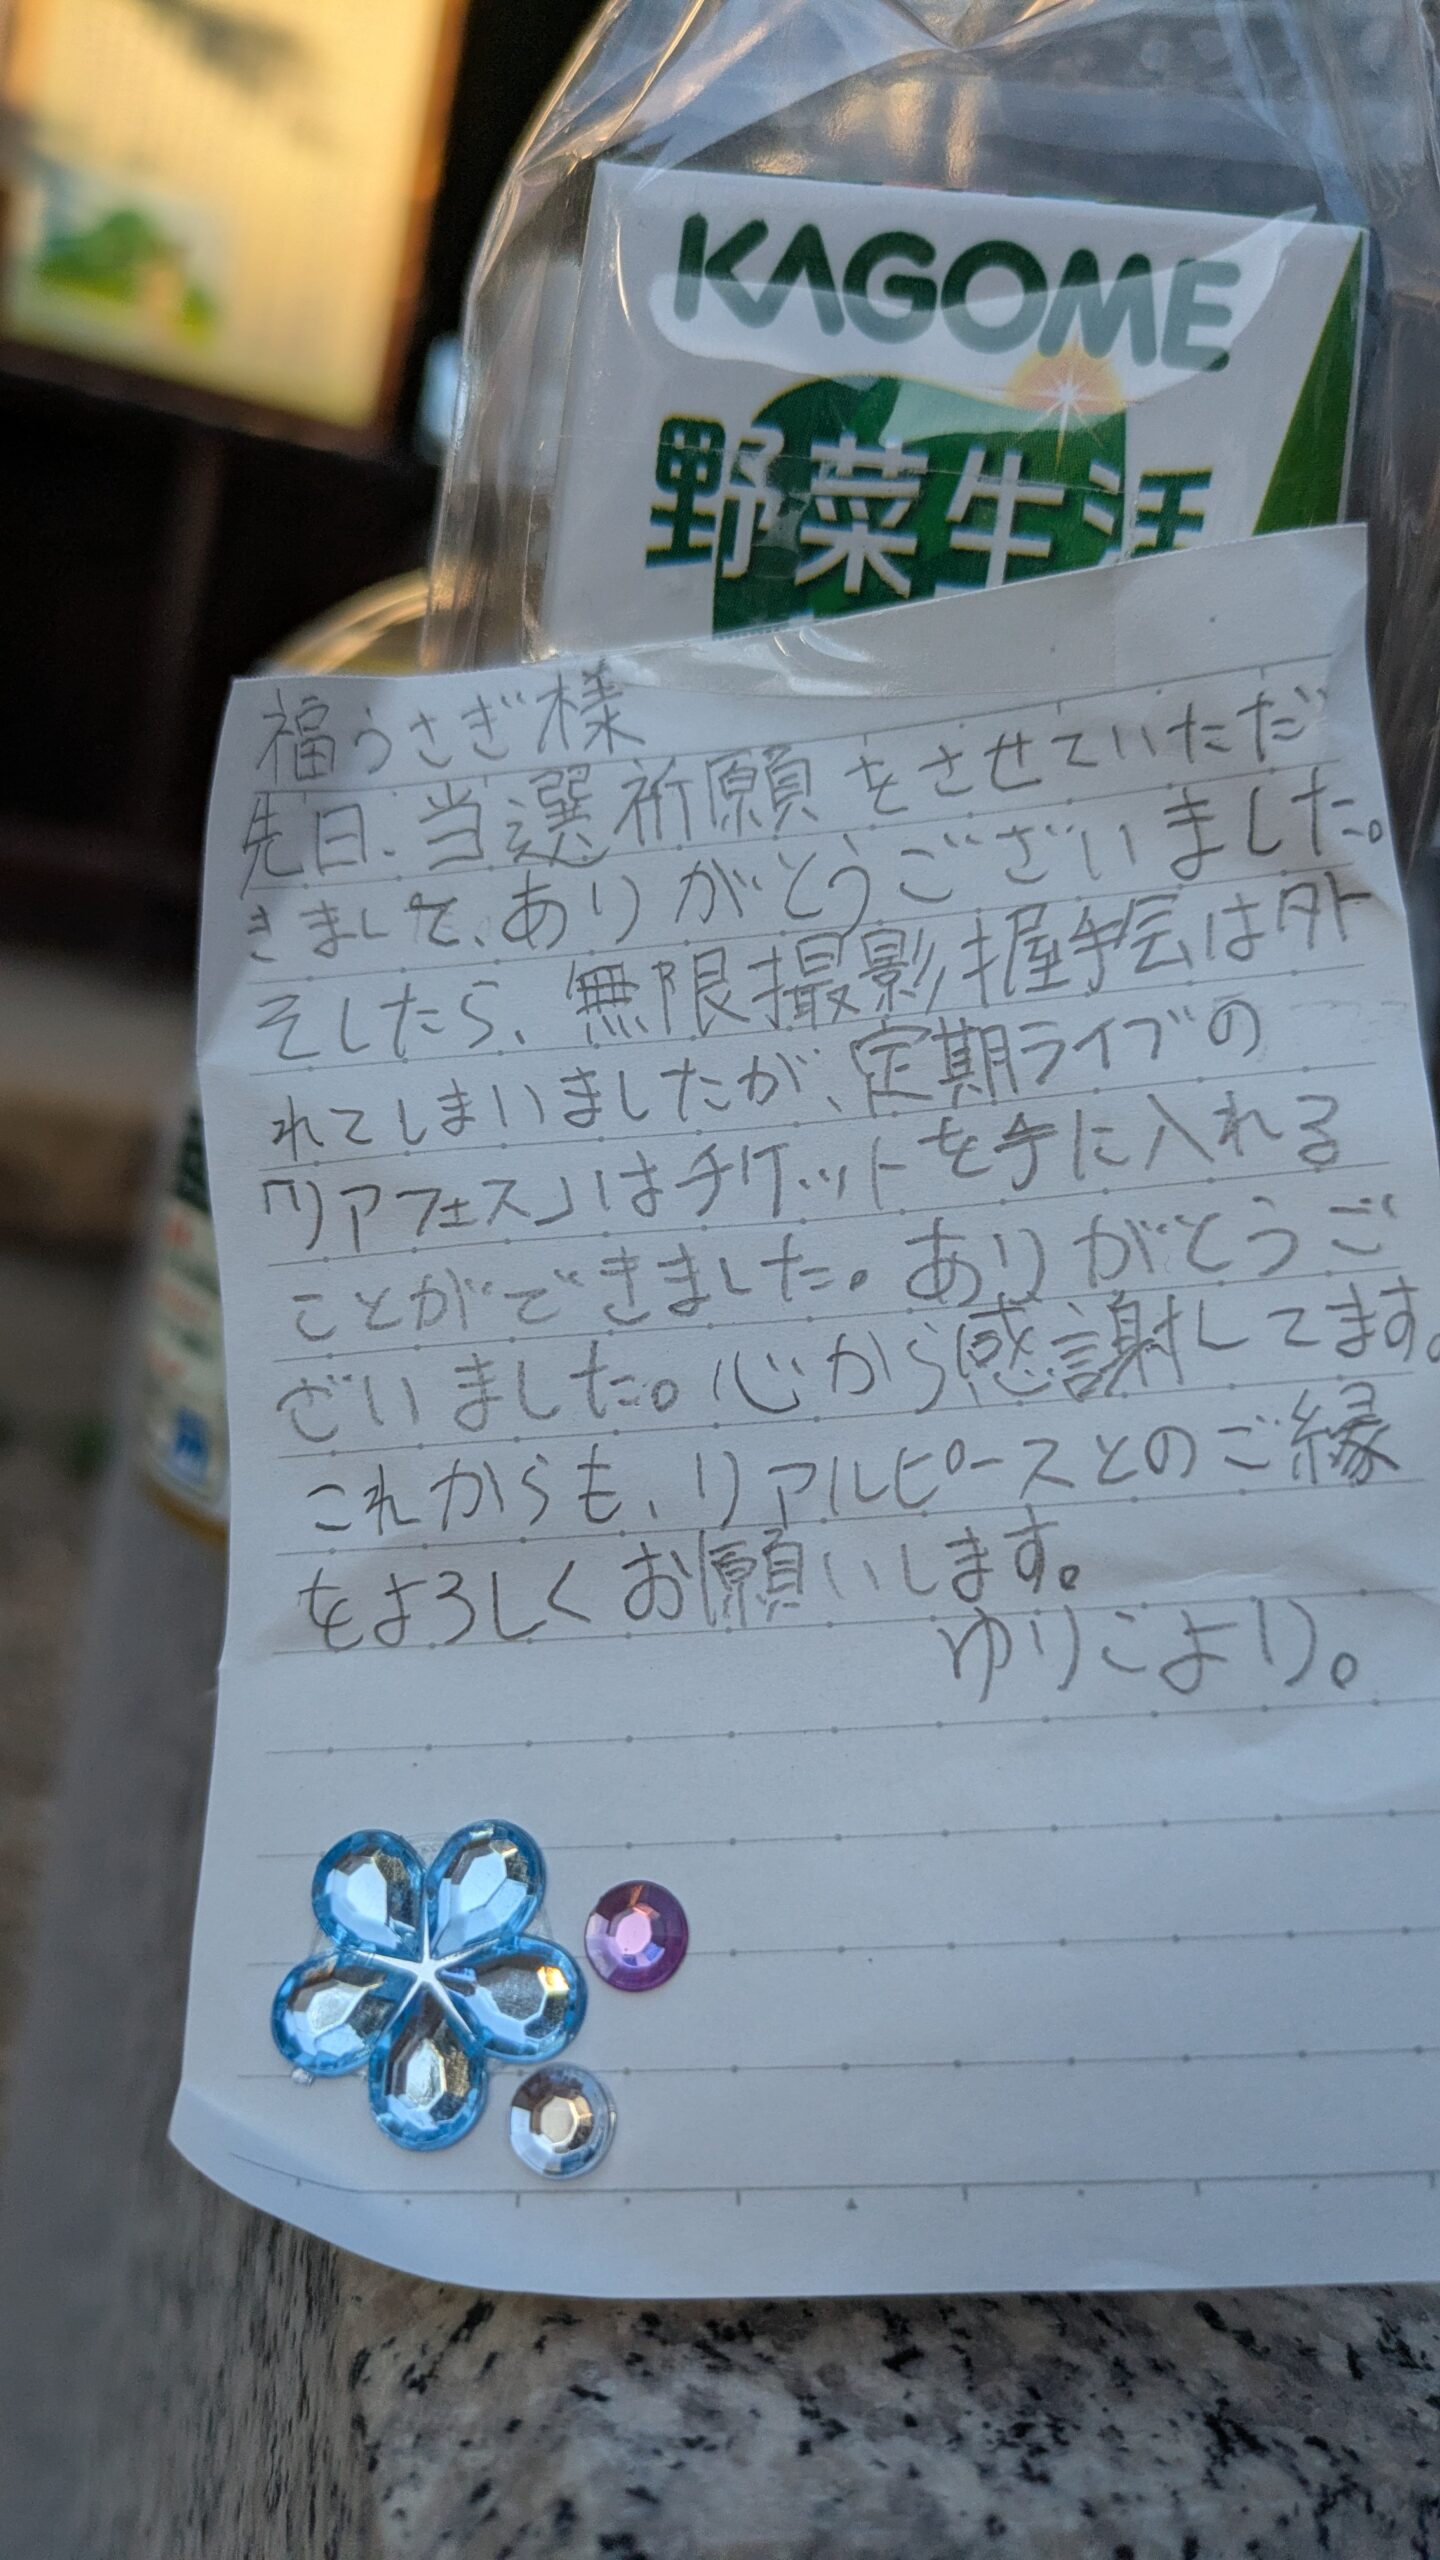 KAGOME
野菜生活
福うさぎ様
先日、当選祈願をさせていただ
きまして、ありがとうございました。
そしたら、無限撮影握手会は外
れてしまいましたが、定期ライブの
「リアフェス」はチケットを手に入れる
ことができました。ありがとうご
ざいました。心から感謝してます。
これからも、リアルピースとのご縁
をよろしくお願いします。
ゆりこより。